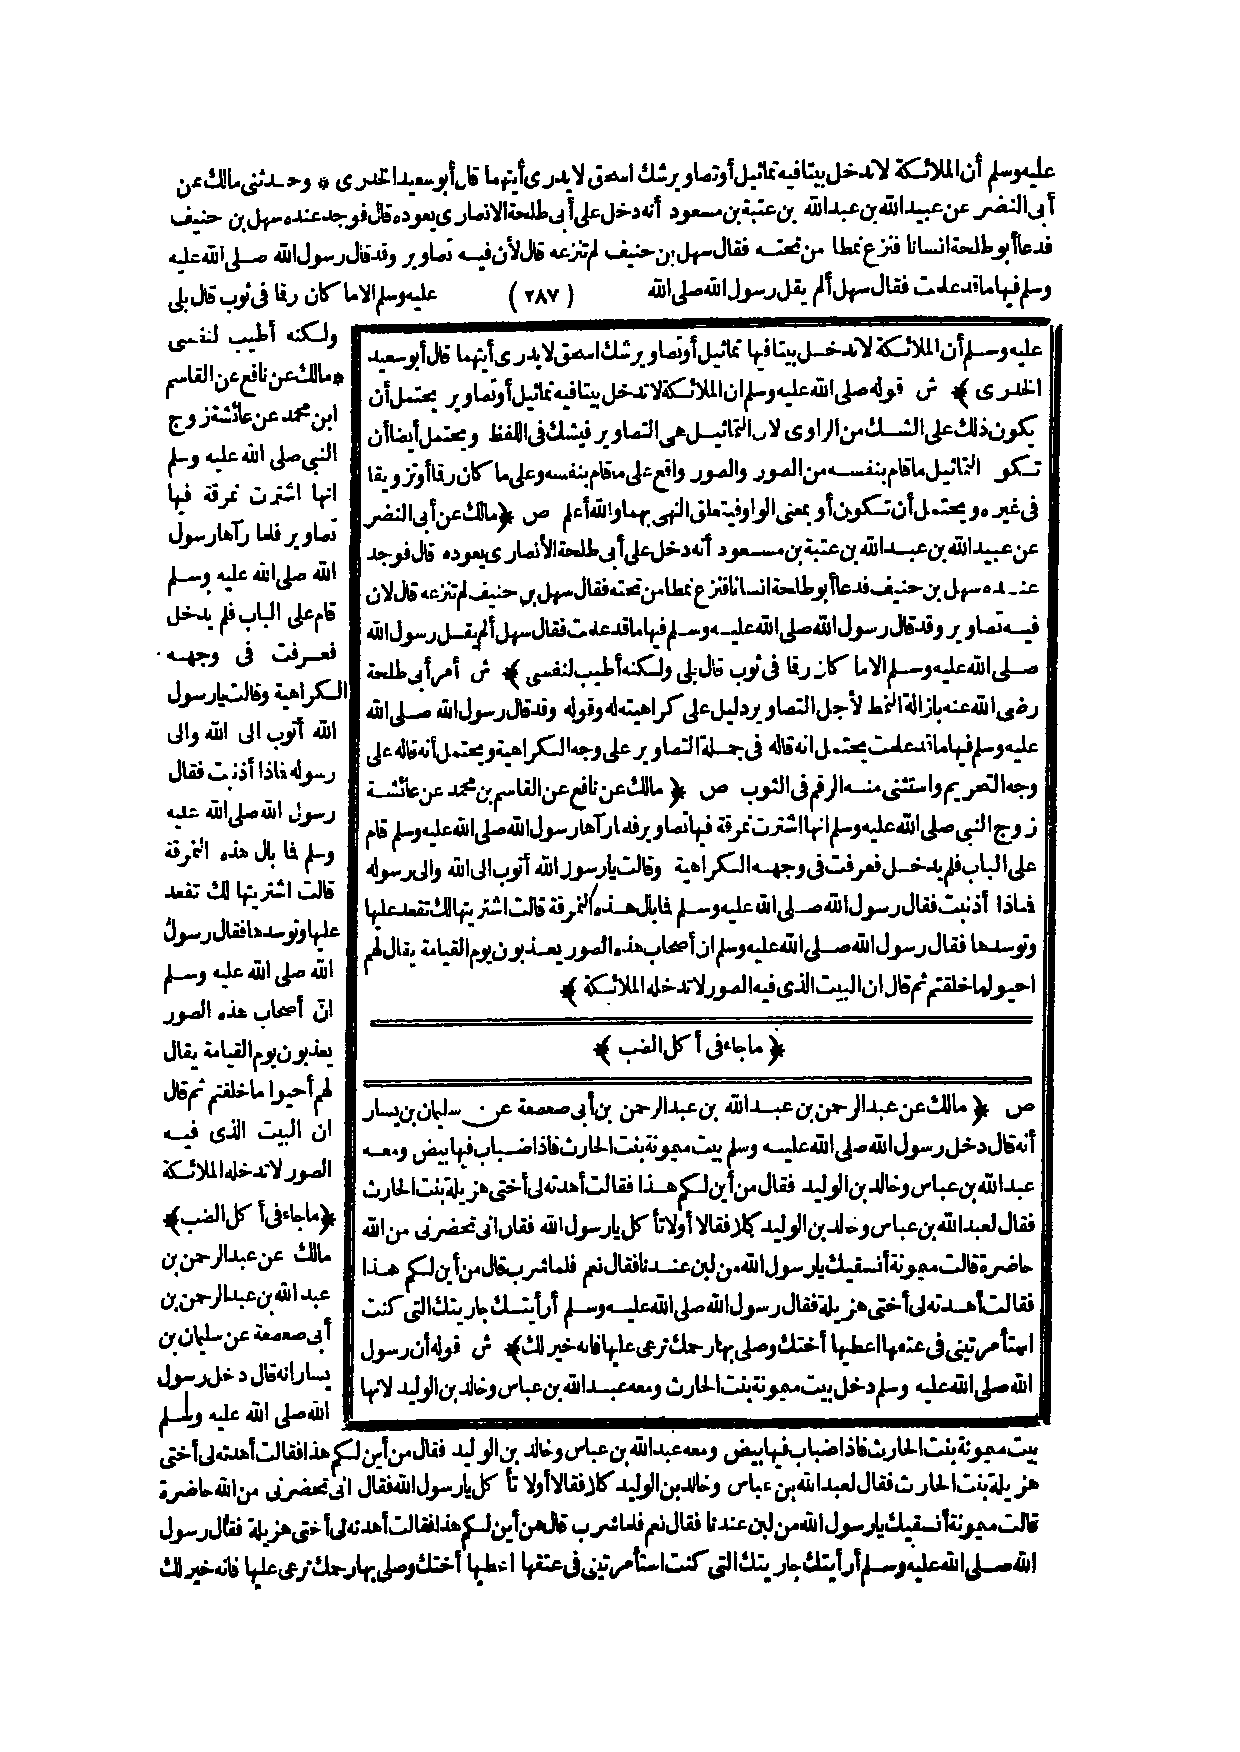 عليه وسلم أن الملائكة لا تدخل بيتا فيه تماثيل أو تصاوير شك اسحق لا يدرى أيتهما قال أبو سعيد الخدرى * وحدثنى مالك عن
أبى النضر عن عبيد الله بن عبد الله بن عتبة بن مسعود أنه دخل على أبى طلحة الانصارى يعوده قال فوجد عنده سهل بن حنيف
فدعا أبو طلحة انسانا فنزع نمطا من تحته فقال سهل بن حنيف لم تنزعه قال لأن فيه تصاوير وقد قال رسول الله صلى الله عليه
وسلم فيها ما قد علمت فقال سهل ألم يقل رسول الله صلى الله (٢٨٧) عليه وسلم الا ما كان رقما فى ثوب قال بلى
ولكنه أطيب لنفسى
* مالك عن نافع عن القاسم
ابن محمد عن عائشة زوج
النبى صلى الله عليه وسلم
انها اشترت نمرقة فيها
تصاوير فلما رآها رسول
الله صلى الله عليه وسلم
قام على الباب فلم يدخل
فعرفت فى وجهه
الكراهية وقالت يارسول
الله أتوب الى الله والى
رسوله فماذا أذنبت فقال
رسول الله صلى الله عليه
وسلم فما بال هذه النمرقة
قالت اشتريتها لك تقعد
عليها وتوسدها فقال رسول
الله صلى الله عليه وسلم
ان أصحاب هذه الصور
يعذبون يوم القيامة يقال
لهم أحيوا ما خلقتم ثم قال
ان البيت الذى فيه
الصور لا تدخله الملائكة
﴿ما جاء فى أكل الضب﴾
مالك عن عبد الرحمن بن
عبد الله بن عبد الرحمن بن
أبى صعصعة عن سليمان بن
يسار انه قال دخل رسول
الله صلى الله عليه وسلم
بيت ميمونة بنت الحارث فاذا ضباب فيها بيض ومعه عبد الله بن عباس وخالد بن الوليد فقال من أين لكم هذا فقالت أهدته لى أختى
هزيلة بنت الحارث فقال لعبد الله بن عباس وخالد بن الوليد كلا فقالا أولا تأكل يارسول الله فقال انى تحضرنى من الله حاضرة
قالت ميمونة أنسقيك يارسول الله من لبن عندنا فقال نعم فلما شرب قال من أين لكم هذا فقالت أهدته لى أختى هزيلة فقال رسول
الله صلى الله عليه وسلم أرأيتك جاريتك التى كنت استأمرتينى فى عتقها اعطيها أختك وصلى بها رحمك ترعى عليها فانه خير لك
عليه وسلم أن الملائكة لا تدخل بيتا فيها تماثيل أو تصاوير شك اسحق لا يدرى أيتهما قال أبو سعيد
الخدرى ﴾ ش قوله صلى الله عليه وسلم ان الملائكة لا تدخل بيتا فيه تماثيل أو تصاوير يحتمل أن
يكون ذلك على الشك من الراوى لان التماثيل هى التصاوير فيشك فى اللفظ ويحتمل أيضا أن
تكو التماثيل ما قام بنفسه من الصور والصور واقع على ما قام بنفسه وعلى ما كان رقما أو تزويقا
فى غيره ويحتمل أن تكون أو بمعنى الواو فيتعلق النهى بهما والله أعلم ص ﴿ مالك عن أبى النضر
عن عبيد الله بن عبد الله بن عتبة بن مسعود أنه دخل على أبى طلحة الأنصارى يعوده قال فوجد
عنده سهل بن حنيف فدعا أبو طلحة انسانا فنزع نمطا من تحته فقال سهل بن حنيف لم تنزعه قال لان
فيه تصاوير وقد قال رسول الله صلى الله عليه وسلم فيها ما قد علمت فقال سهل ألم يقل رسول الله
صلى الله عليه وسلم الا ما كان رقما فى ثوب قال بلى ولكنه أطيب لنفسى ﴾ ش أمر أبى طلحة
رضى الله عنه بازالة النمط لأجل التصاوير دليل على كراهيته له وقوله وقد قال رسول الله صلى الله
عليه وسلم فيها ما قد علمت يحتمل انه قاله فى جملة التصاوير على وجه الكراهية ويحتمل أنه قاله على
وجه التحريم واستثنى منه الرقم فى الثوب ص ﴿ مالك عن نافع عن القاسم بن محمد عن عائشة
زوج النبى صلى الله عليه وسلم انها اشترت نمرقة فيها تصاوير فلما رآها رسول الله صلى الله عليه وسلم قام
على الباب فلم يدخل فعرفت فى وجهه الكراهية وقالت يارسول الله أتوب الى الله والى رسوله
فماذا أذنبت فقال رسول الله صلى الله عليه وسلم فما بال هذه النمرقة قالت اشتريتها لك تقعد عليها
وتوسدها فقال رسول الله صلى الله عليه وسلم ان أصحاب هذه الصور يعذبون يوم القيامة يقال لهم
احيوا ما خلقتم ثم قال ان البيت الذى فيه الصور لا تدخله الملائكة ﴾
﴿ ما جاء فى أكل الضب ﴾
ص ﴿ مالك عن عبد الرحمن بن عبد الله بن عبد الرحمن بن أبى صعصعة عن سليمان بن يسار
أنه قال دخل رسول الله صلى الله عليه وسلم بيت ميمونة بنت الحارث فاذا ضباب فيها بيض ومعه
عبد الله بن عباس وخالد بن الوليد فقال من أين لكم هذا فقالت أهدته لى أختى هزيلة بنت الحارث
فقال لعبد الله بن عباس وخالد بن الوليد كلا فقالا أولا تأكل يارسول الله فقال انى تحضرنى من الله
حاضرة قالت ميمونة أنسقيك يارسول الله من لبن عندنا فقال نعم فلما شرب قال من أين لكم هذا
فقالت أهدته لى أختى هزيلة فقال رسول الله صلى الله عليه وسلم أرأيتك جاريتك التى كنت
استأمرتينى فى عتقها اعطيها أختك وصلى بها رحمك ترعى عليها فانه خير لك ﴾ ش قوله أن رسول
الله صلى الله عليه وسلم دخل بيت ميمونة بنت الحارث ومعه عبد الله بن عباس وخالد بن الوليد لانها